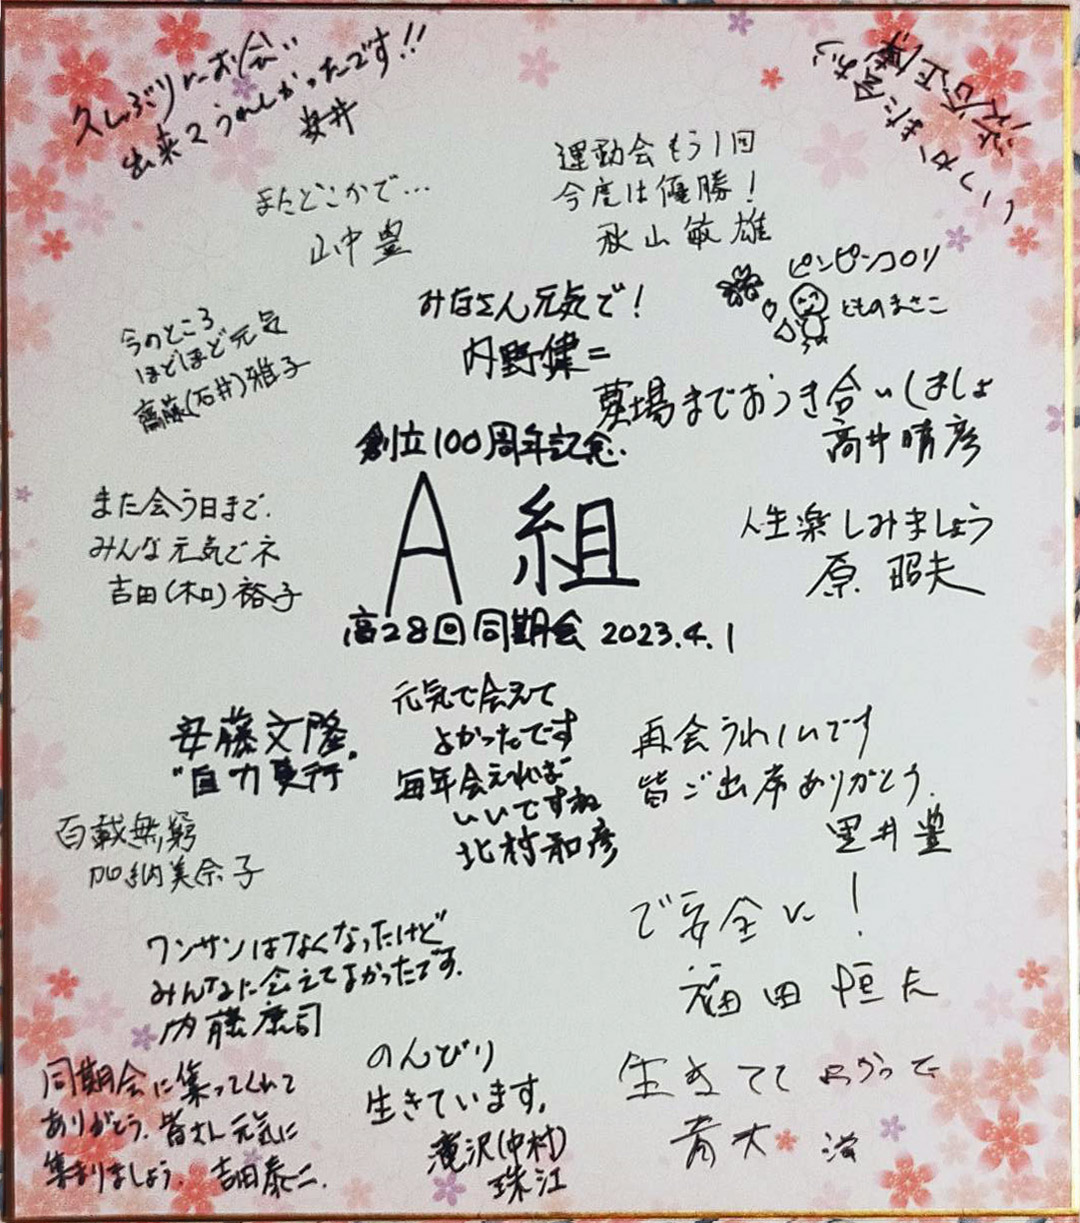 久しぶりにお会い
出来てうれしかったです!!
安井
いつかまた会おう
またどこかで…
山中豊
運動会もう1回
今度は優勝!
秋山敏雄
ピンピンコロリ
とものまさこ
みなさん元気で!
内野健二
今のところ
ほどほど元気
齋藤(石井)雅子
墓場までおつき合いしましょ
高井晴彦
創立100周年記念
A組
高28回同期会 2023.4.1
また会う日まで.
みんな元気でネ
吉田(木口)裕子
人生楽しみましょう
原 昭夫
安藤文隆
"自力更行"
元気で会えて
よかったです
毎年会えれば
いいですね
北村和彦
再会うれしいです
皆ご出席ありがとう.
黒井豊
百載無窮
加納美奈子
ワンサンはなくなったけど
みんなに会えてよかったです.
内藤康司
で安全に!
福田恒夫
同期会に集ってくれて
ありがとう.皆さん元気に
集まりましょう. 吉田泰二.
のんびり
生きています.
滝沢(中村)
珠江
生きてて よかった
青木